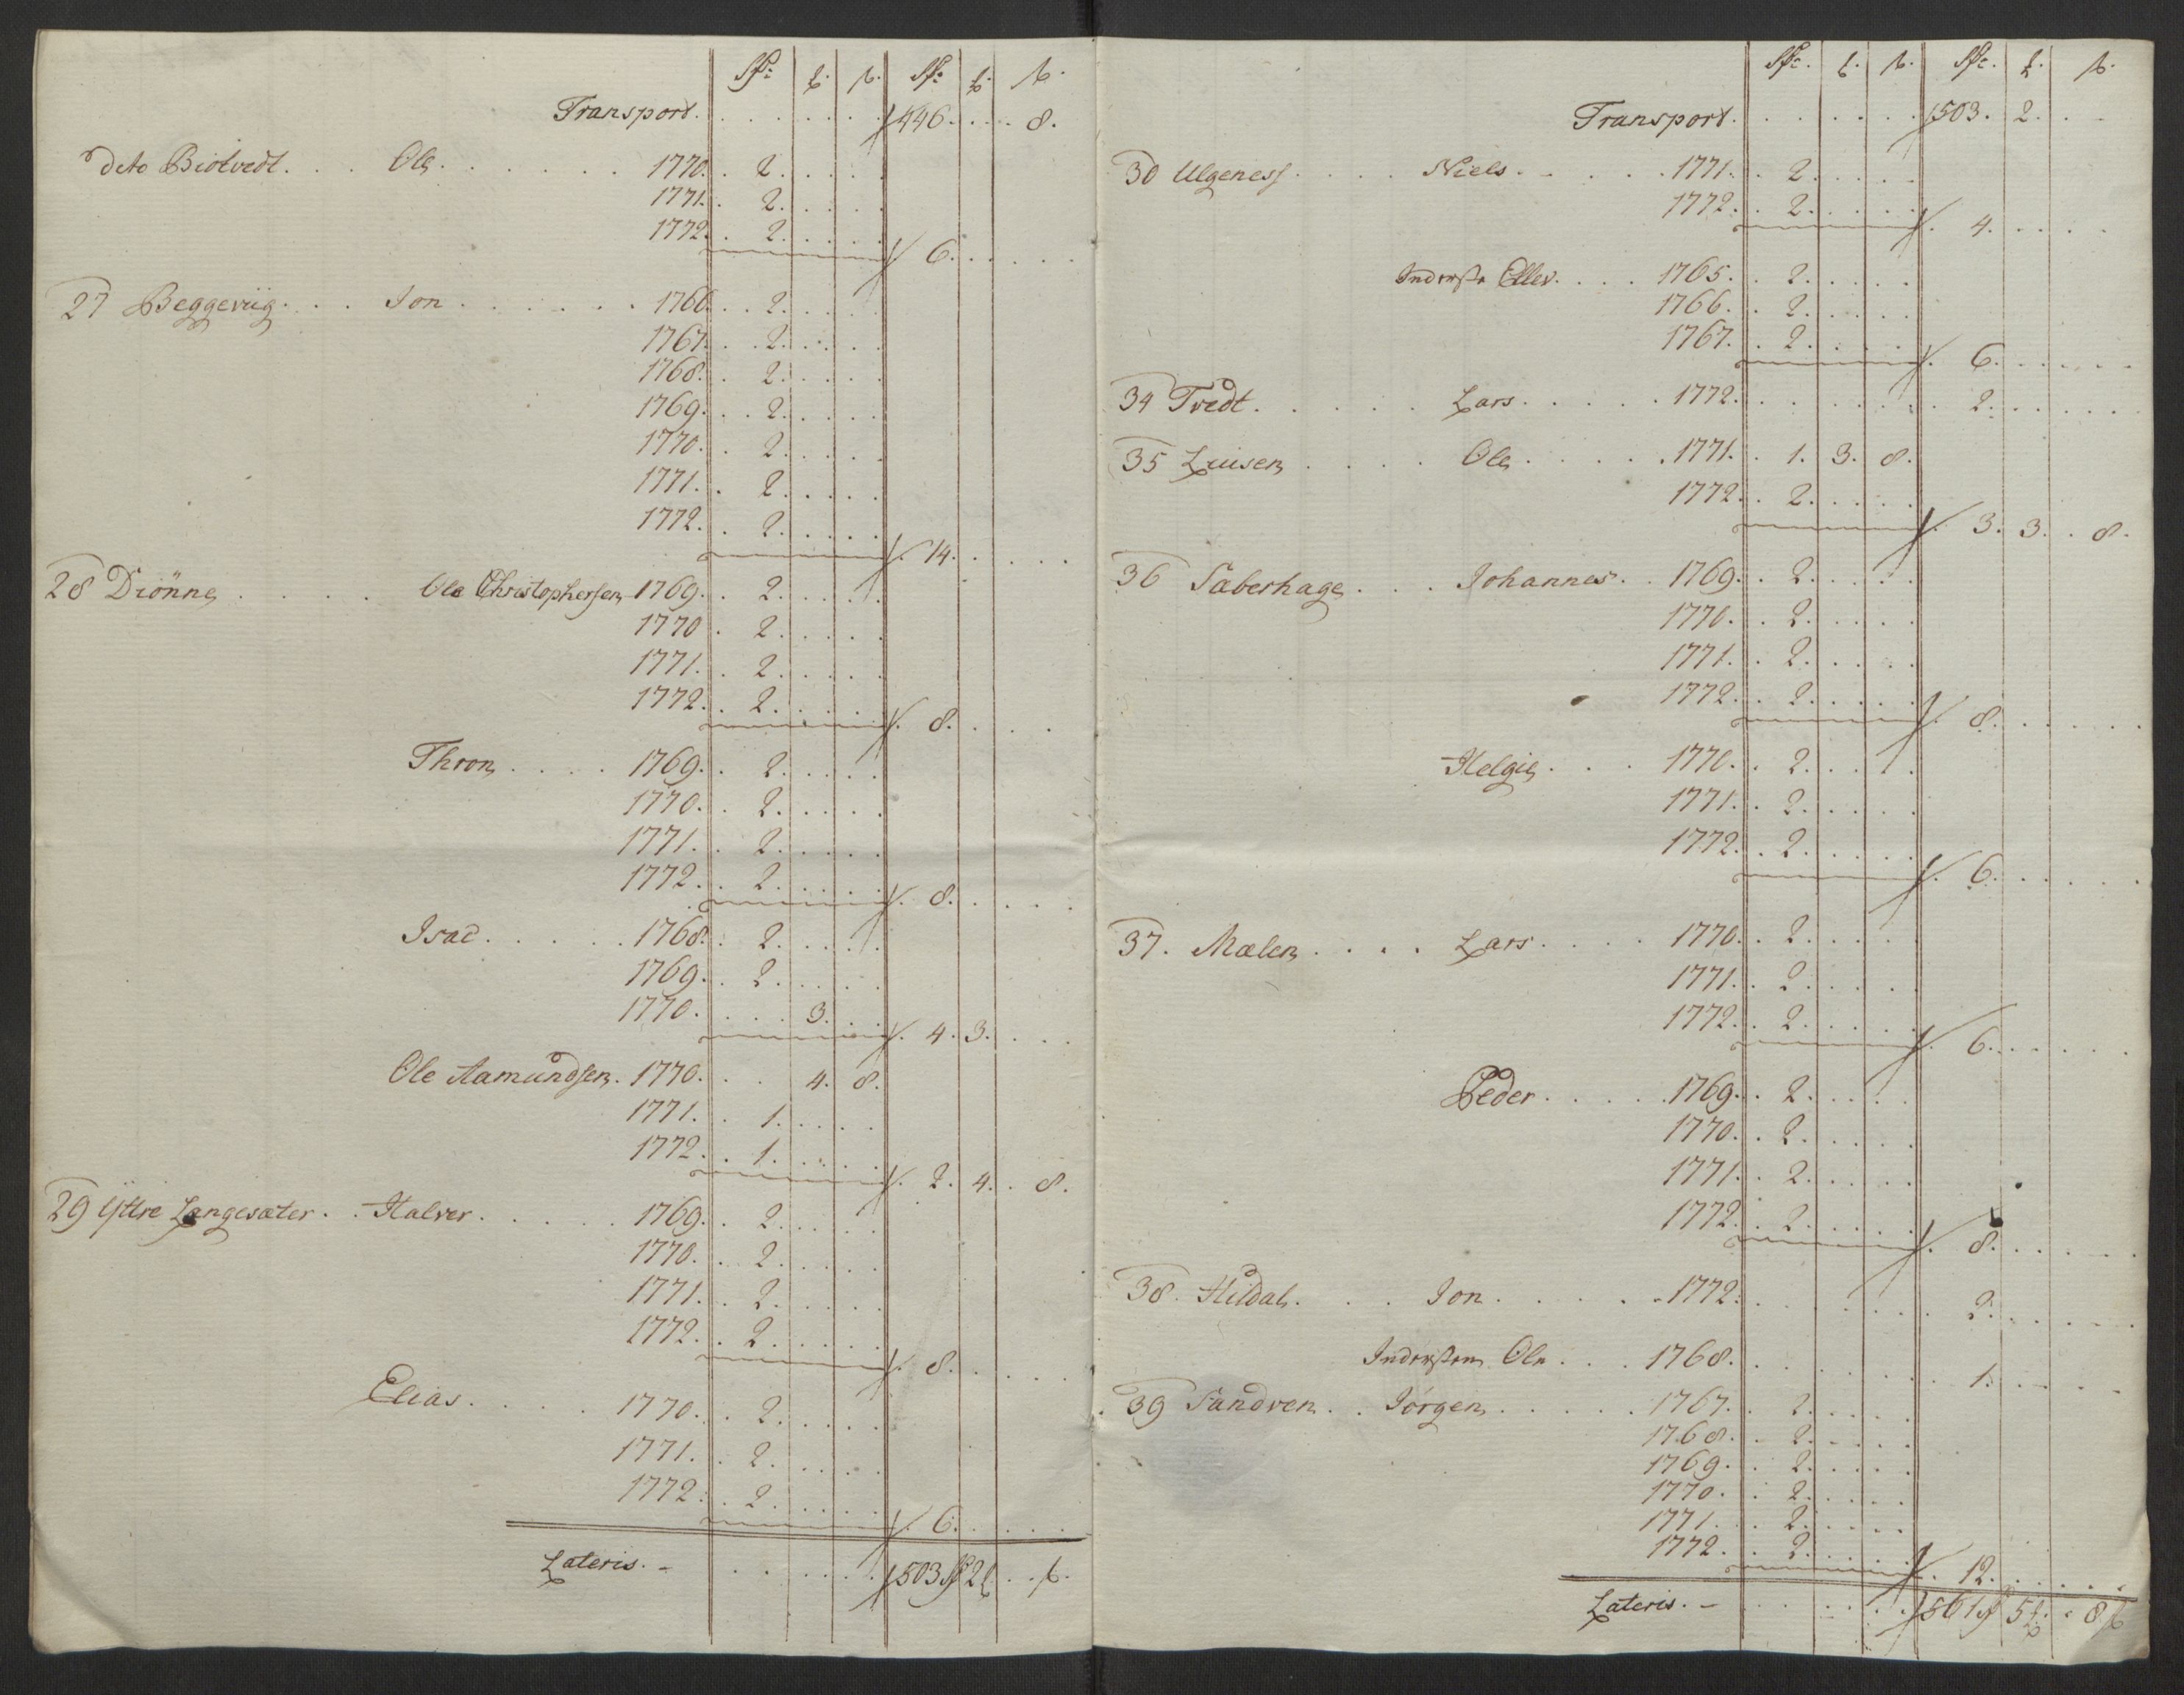 Transport. . . . . . . 446. . . . 8.
dito Biötvedt. . . Ole. . . . . . . 1770. . 2. . . . .
1771. . 2. . . . .
1772. . 2. . . . . 6. . . . . .
27 Beggeviig. . . Jon . . . . . . 1766. . 2. . . . .
1767. . 2. . . . .
1768. . 2. . . . .
1769. . 2. . . . .
1770. . 2. . . . .
1771. . 2. . . . .
1772. . 2. . . . . 14. . . . .
28 Diönne . . . . Ole Christophersen 1769. . 2. . . . .
1770 . 2. . . . .
1771. . 2. . . . .
1772. . 2. . . . . 8. . . . .
Thron . . . . 1769. . 2. . . . .
1770. . 2. . . . .
1771. . 2. . . . .
1772. . 2. . . . . 8. . . . .
Isac. . . . . . 1768. . 2. . . . .
1769. . 2. . . . .
1770. . . . 3. . . 4. 3. . . .
Ole Aamundsen. 1770. . . 4. 8.
1771. . 1. . . . .
1772. . 1. . . . . 2. 4. . 8.
29 Yttre Langesæter. . Halver. . . . . . 1769. . 2. . . . .
1770. . 2. . . . .
1771. . 2. . . . .
1772. . 2. . . . . 8. . . . .
Elias. . . . . 1770. . 2. . . . .
1771. . 2. . . . .
1772. . 2. . . . . 6. . . . .
Lateris. - . . . . . . 503 2
Transport. . . . . . . 503. 2. . .
30 Ulgeness. . . . Niels. . . . . . 1771. . 2. . . . .
1772. . 2. . . . . 4. . . . .
Inderste Ellev. . . . 1765. . 2. . . . .
1766. . 2. . . . .
1767. . 2. . . . . 6. . . . . .
34 Tvedt. . . . . . Lars. . . . . . 1772. . . . . . . . 2. . . . . .
35 Luisen . . . . Ole . . . . . 1771. . 1. 3. 8.
1772. . 2. . . . . 3. 3. . 8.
36 Saberhage. . . . Johannes. . 1769. . 2. . . . .
1770. . 2. . . . .
1771. . 2. . . . .
1772. . 2. . . . . 8. . . . . .
Helgie. . . . 1770. . 2. . . . .
1771. . 2. . . . .
1772. . 2. . . . . 6. . . . . .
37. Mælen . . . . Lars. . . . . 1770. . 2. . . . .
1771. . 2. . . . .
1772. . 2. . . . . 6. . . . . .
Peder. . . . . 1769. . 2. . . . .
1770. . 2. . . . .
1771. . 2. . . . .
1772. . 2. . . . . 8. . . . . .
38. Hildal. . . . Jon. . . . . . 1772. . . . . . . . 2. . . . . .
Indersten Ole . . . 1768. . . . . . . . 1. . . . .
39 Sandven. . . Jörgen. . . . . . 1767. . 2. . . . .
1768. . 2. . . . .
1769. . 2. . . . .
1770. . 2. . . . .
1771. . 2. . . . .
1772. . 2. . . . . 12. . . . . .
Lateris. - . . . . . . 561 5 . 8